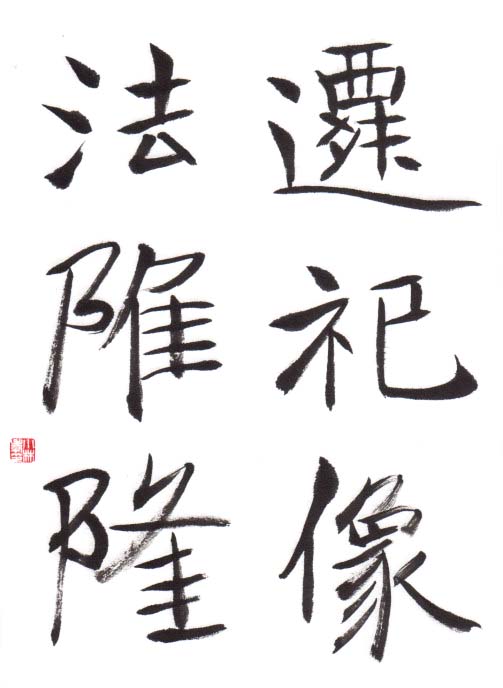 遷祀像
法陮隆